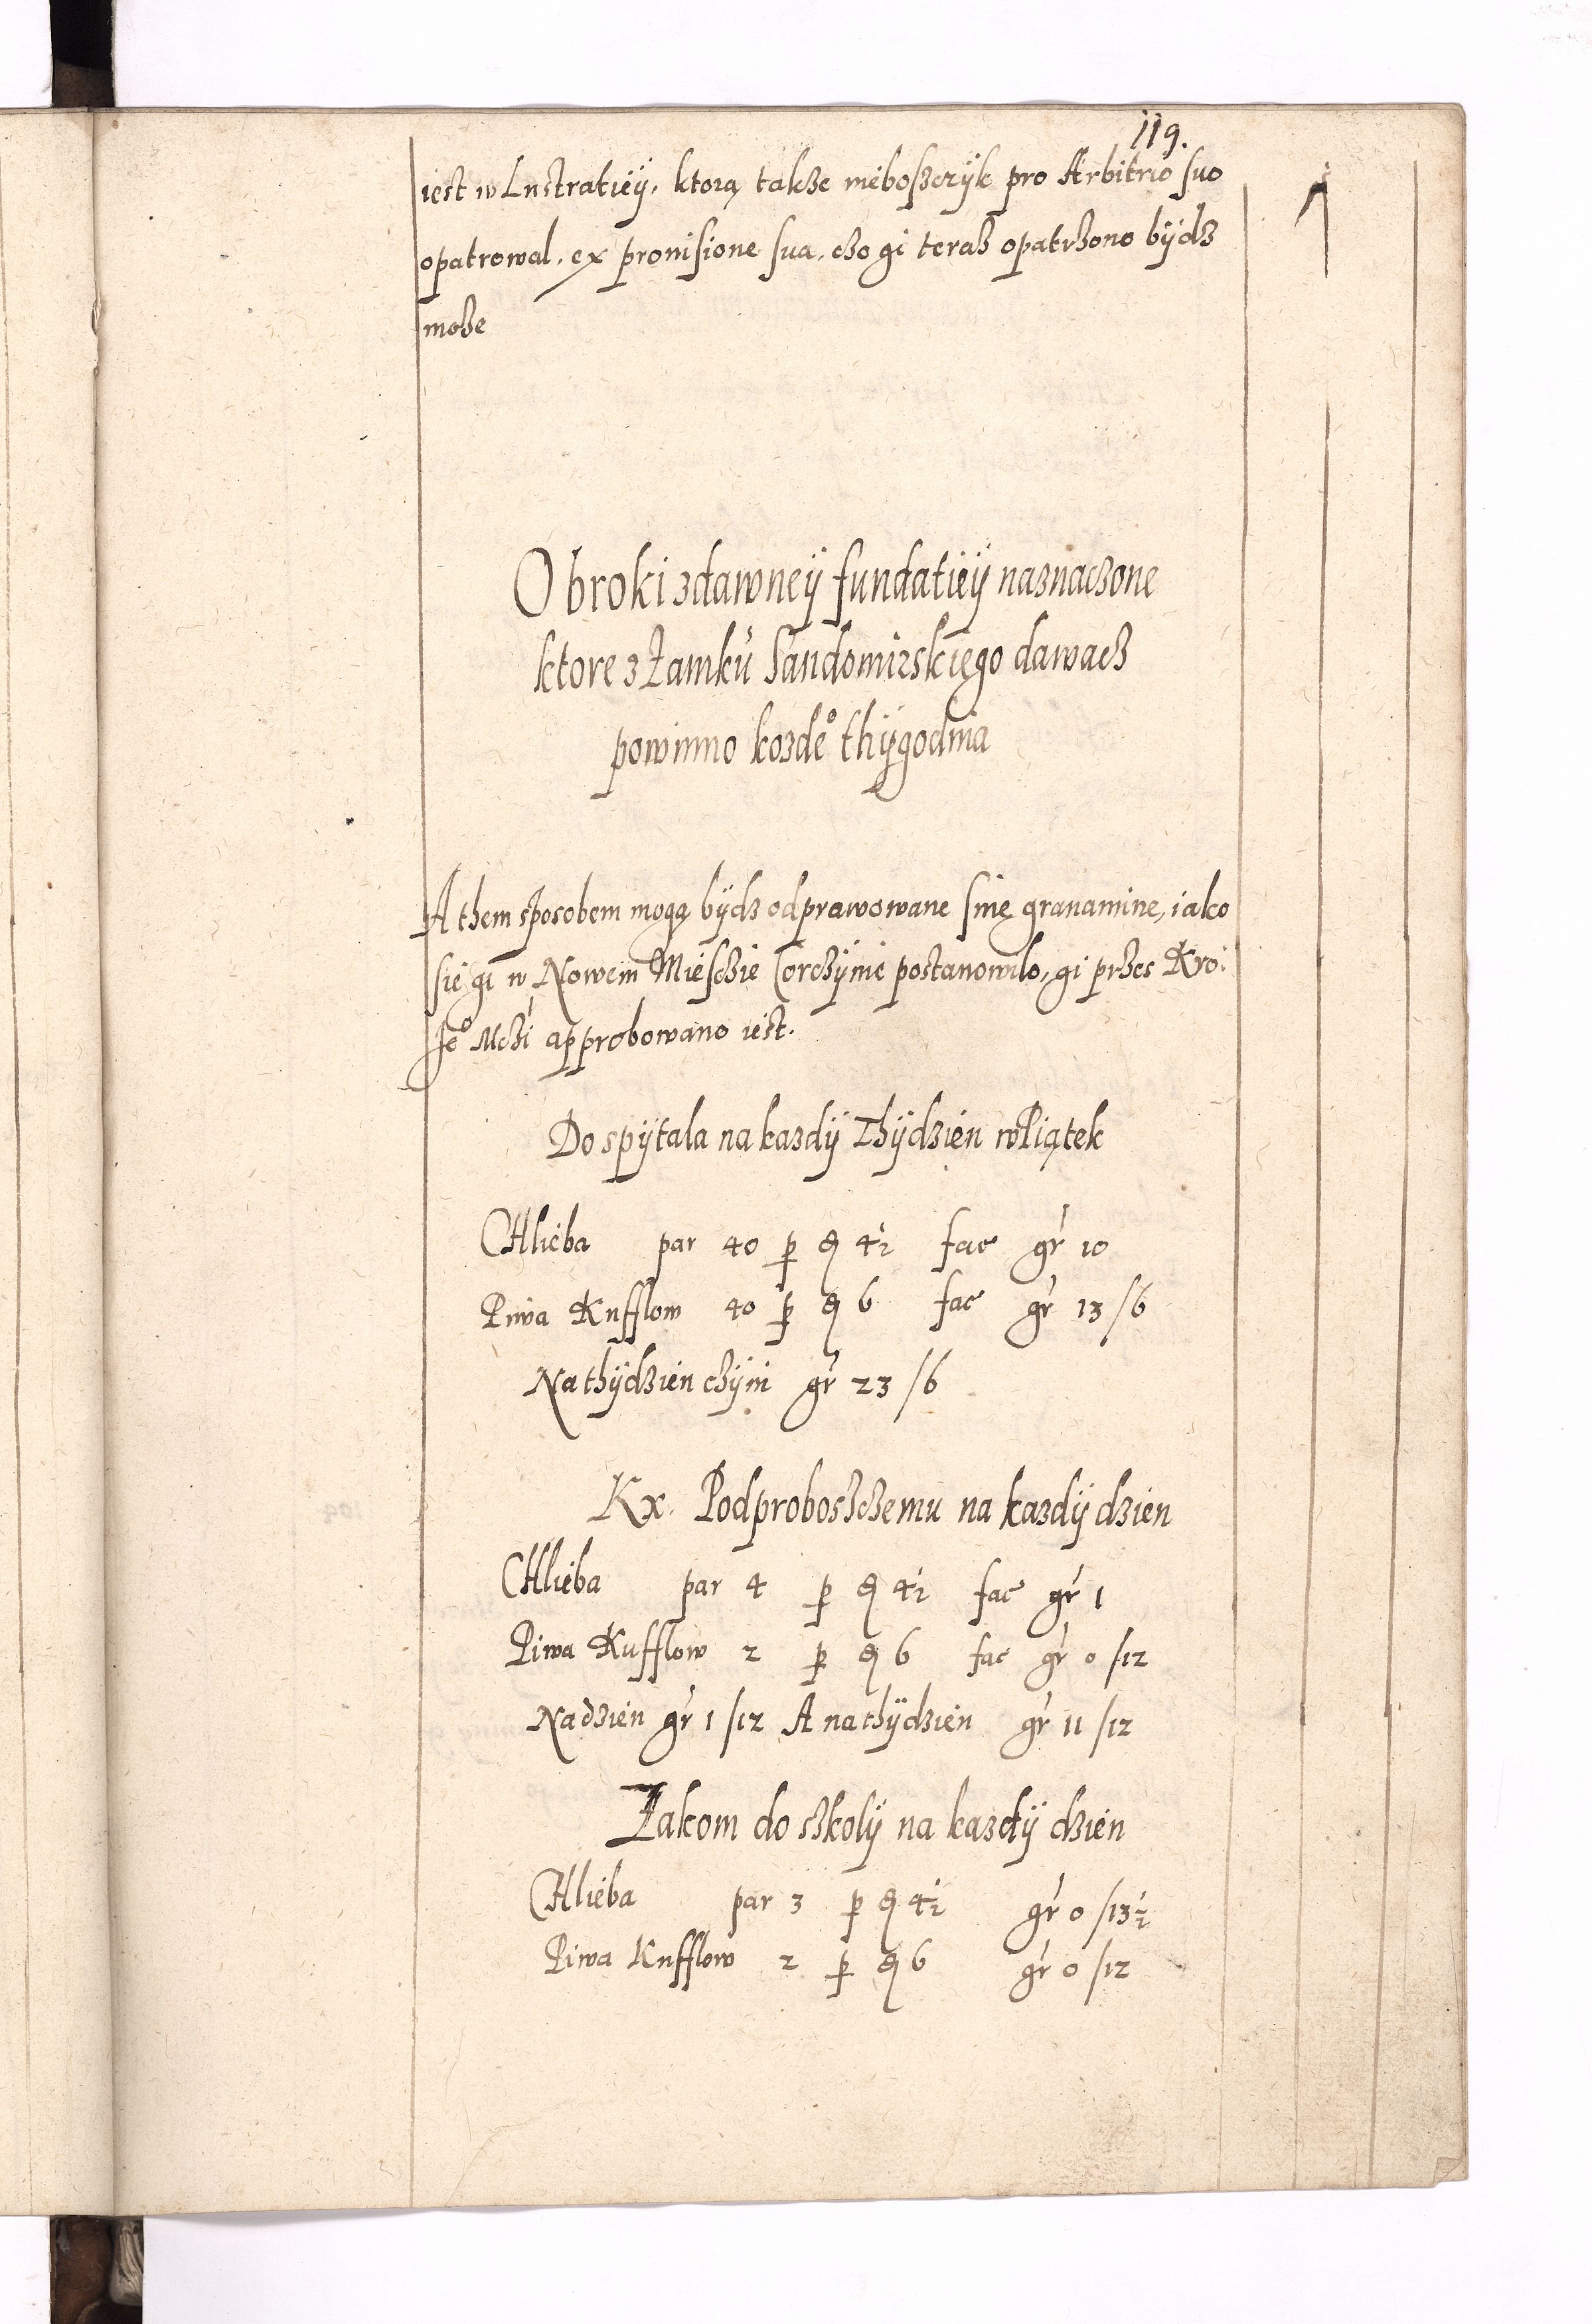 119.
iest w Lustratiey, ktorą takze niebosczyk pro Arbitrio suo
opatrowal, ex provisione sua, czo gi teraz opatrzono bÿdz
moze
Obroki z dawneÿ fundatieÿ naznaczone
ktore z Zamku Sandomirskiego dawacz
powinno kozdeº thÿgodnia
A them sposobem mogą bÿdz odprawowane sine gravamine, iako
sie gi w Nowem Miesczie Corczÿnie postanowilo, gi przes Kroi
Jeº Mczi approbowano iest.
Do spÿtala na kazdÿ Thÿdzien w Piątek
Chlieba par 40 p ꝺ 4½ fac gr 10
Piwa Kufflow 40 p ꝺ 6 fac gr 13/6
Na thÿdzien czÿni gr 23/6
Kx. Podproboszczemu na kazdÿ dzien
Chlieba par 4 p ꝺ 4½ fac gr 1
Piwa Kufflow 2 p ꝺ 6 fac gr 0/12
Na dzien gr 1/12 A na thÿdzien gr 11/12
Zakom do szkolÿ na kazdÿ dzien
Chlieba par 3 p ꝺ 4½ gr 0/13½
Piwa Kufflow 2 p ꝺ 6 gr 0/12